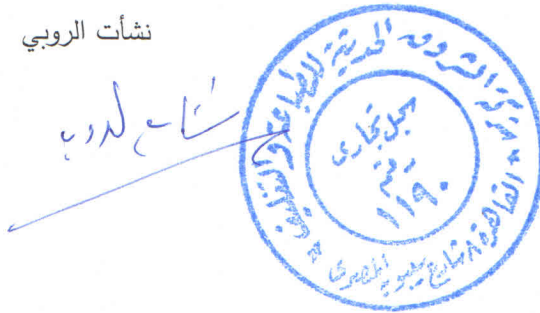 نشأت الروبي
نشأت الروبي
شركة الشروق الحديثة للطباعة والتغليف
سجل تجاري
رقم
١١٩٠
القاهرة ٨ شارع سيبويه المصرى